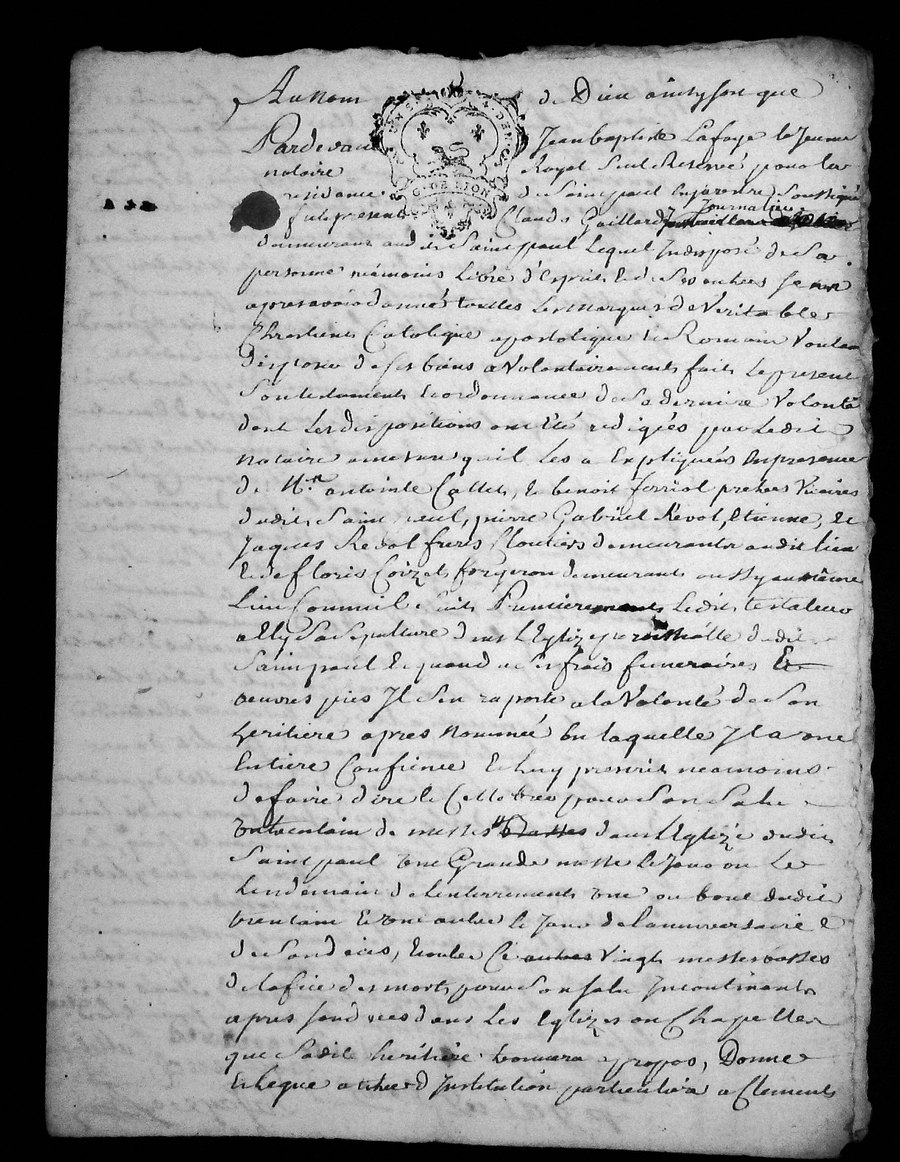 Au Nom de Dieu ainsy soit que
Pardevant Jean baptiste Lafaye le Jeune
notaire Royal Seul Reservé pour la
residance de Saint paul en Jarest Soussigné
fut present Claude Gaillard Journalier
G. DE LION
demeurant audit Saint paul Lequel Indisposé de Sa
personne néamoins Libre d'Esprit Et de Ses
apres avoir donné touttes Les marques de Veritable
Chrestient Catolique apostolique Et Romain Voulan
disposer de Ses biens a Volontairements fait Le present
Son testaments Et ordonnance de Sa derniere Volonté
dont Les dispositions ont Eté redigées par Ledit
notaire a mesure quil Les a Expliquées En presence
de Mrs antoine Collet, Et benoit ferriol pretres Vicaires
dudit Saint paul, pierre Gabriel Revol, Etienne, Et
Jaques Revol freres Cloutiers demeurants audit Lieu
Et de floris Coizet forgeron demeurant aussy au même
Lieu Comme il Suit Premierements Ledit testateur
a Elû Sa Sepulture dans L'Eglize parroissialle dudit
Saint paul Et quand a Ses frais funeraires Et
oeuvres pies Il S'en raporte a la Volonté de Son
heritiere apres Nommée En laquelle Il a une
Entiere Confience Et luy prescrit neamoins
de faire dire Et Cellebrer pour Son Salut
un trentain de messes basses dans L'Eglize dudit
Saint paul une Grande messe Le Jour ou Le
Lendemain de L'enterrements une au bout dudit
trentain Et une autre le Jour de L'anniversaire
de Son decès, Et outre Ce autres Vingt messes basses
de Lofice des morts pour Son Salut Incontinants
apres Son deces dans Les Eglizes ou Chapelles
que Sadite heritiere trouvera apropos, Donne
Et legue a titre d'Institution particuliere a Clements